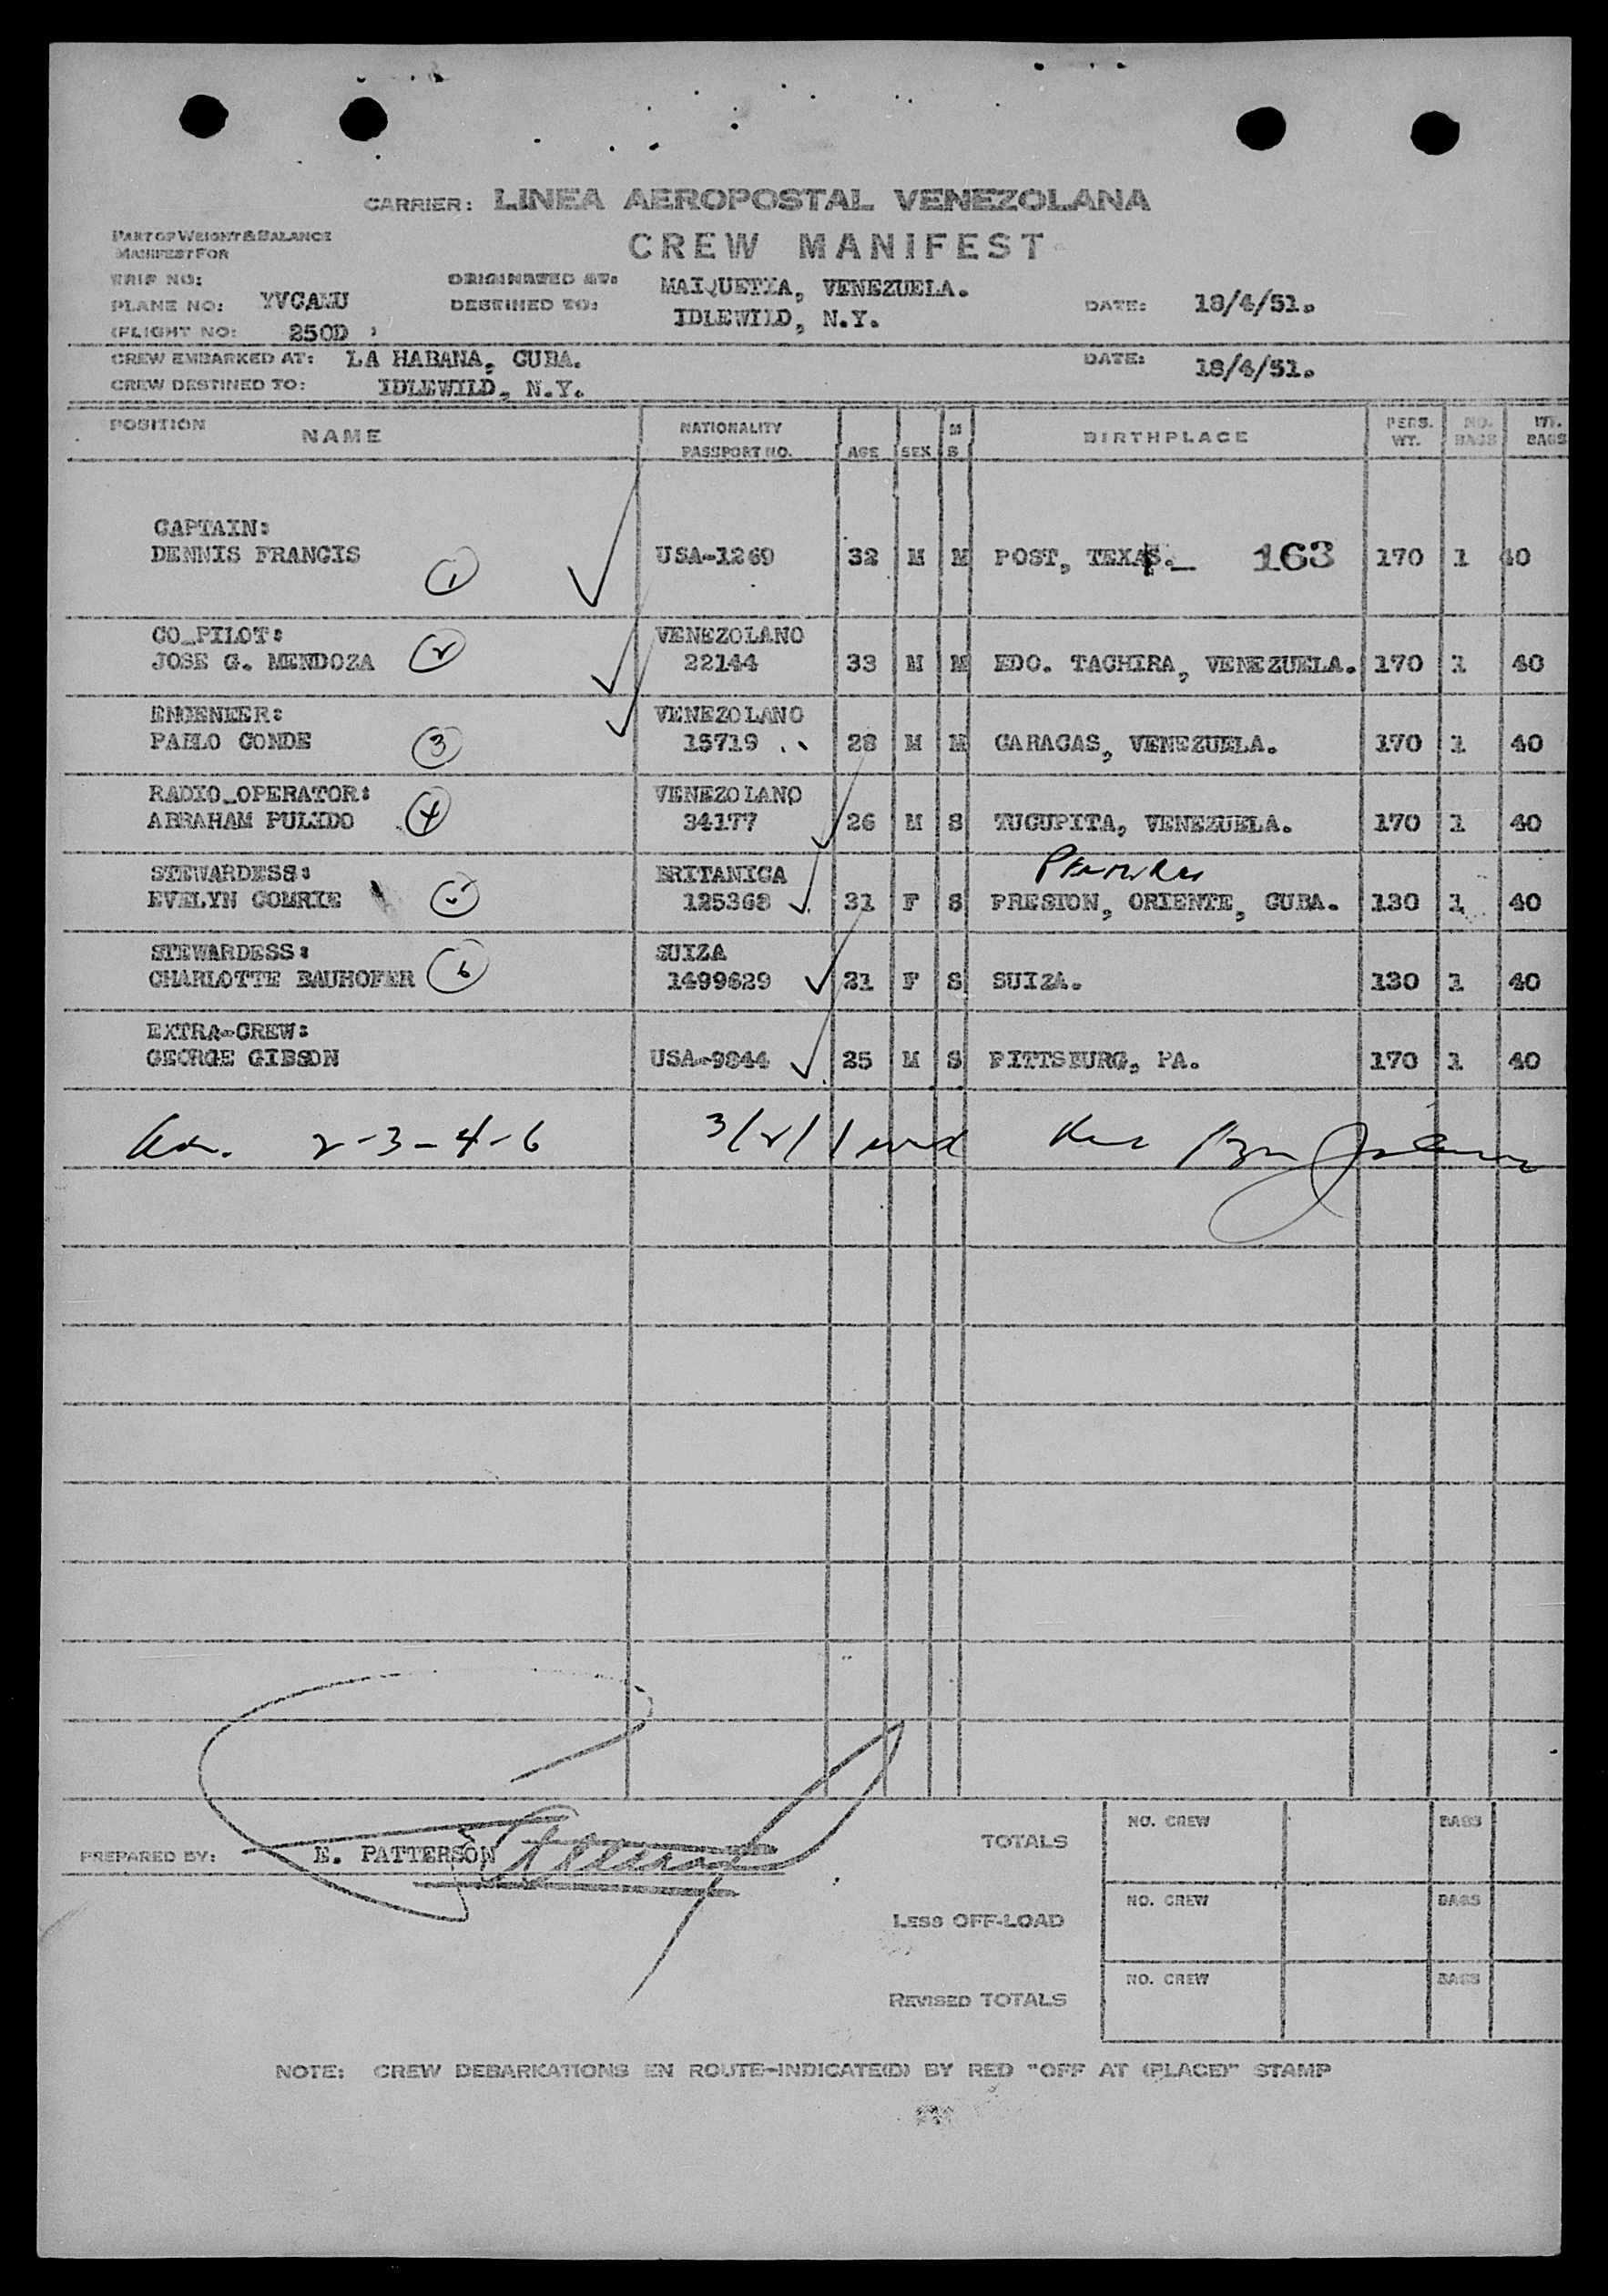 CARRIER: LINEA AEROPOSTAL VENEZOLANA
PART OF WEIGHT & BALANCE
MANIFEST FOR
CREW MANIFEST
TRIP NO:
ORIGINATED AT: MAIQUETIA, VENEZUELA.
PLANE NO: YVCAMU
DESTINED TO: IDLEWILD, N.Y.
DATE: 18/4/51.
(FLIGHT NO: 250D )
CREW EMBARKED AT: LA HABANA, CUBA.
DATE: 18/4/51.
CREW DESTINED TO: IDLEWILD, N.Y.
POSITION NAME NATIONALITY PASSPORT NO. AGE SEX M S BIRTHPLACE PERS. WT. NO. BAGS WT. BAGS
CAPTAIN:
DENNIS FRANCIS 1 USA-1269 32 M M POST, TEXAS. 163 170 1 40
CO_PILOT: VENEZOLANO
JOSE G. MENDOZA 2 22144 33 M M EDO. TACHIRA, VENEZUELA. 170 1 40
ENGENEER: VENEZOLANO
PABLO CONDE 3 15719 28 M M CARACAS, VENEZUELA. 170 1 40
RADIO_OPERATOR: VENEZOLANO
ABRAHAM PULIDO 4 34177 26 M S TUCUPITA, VENEZUELA. 170 1 40
STEWARDESS: BRITANICA
EVELYN GOURIE 125368 31 F S PRESTON, ORIENTE, CUBA. 130 1 40
STEWARDESS: SUIZA
CHARLOTTE BAUHOFER 6 1499629 21 F S SUIZA. 130 1 40
EXTRA-CREW:
GEORGE GIBSON USA-9844 25 M S PITTSBURG, PA. 170 1 40
2-3-4-6
PREPARED BY: E. PATTERSON
TOTALS NO. CREW BAGS
LESS OFF-LOAD NO. CREW BAGS
REVISED TOTALS NO. CREW BAGS
NOTE: CREW DEBARKATIONS EN ROUTE-INDICATE(D) BY RED "OFF AT (PLACE)" STAMP